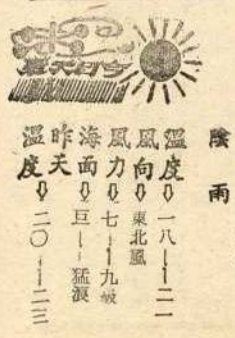 今日天氣
陰雨
溫度⇩一八——二一
風向⇩東北風
風力⇩七——九級
海面⇩巨——猛浪
昨天溫度⇩二〇——二三